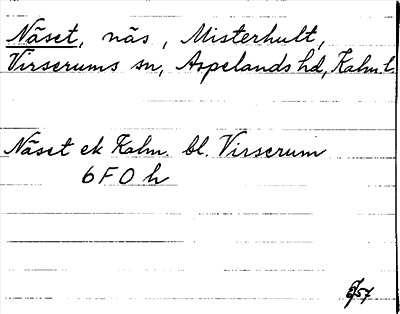 Näset, näs, Misterhult,
Virserums sn, Aspelands hd, Kalm. l.
Näset ek Kalm. bl. Virserum
6 F 0 h